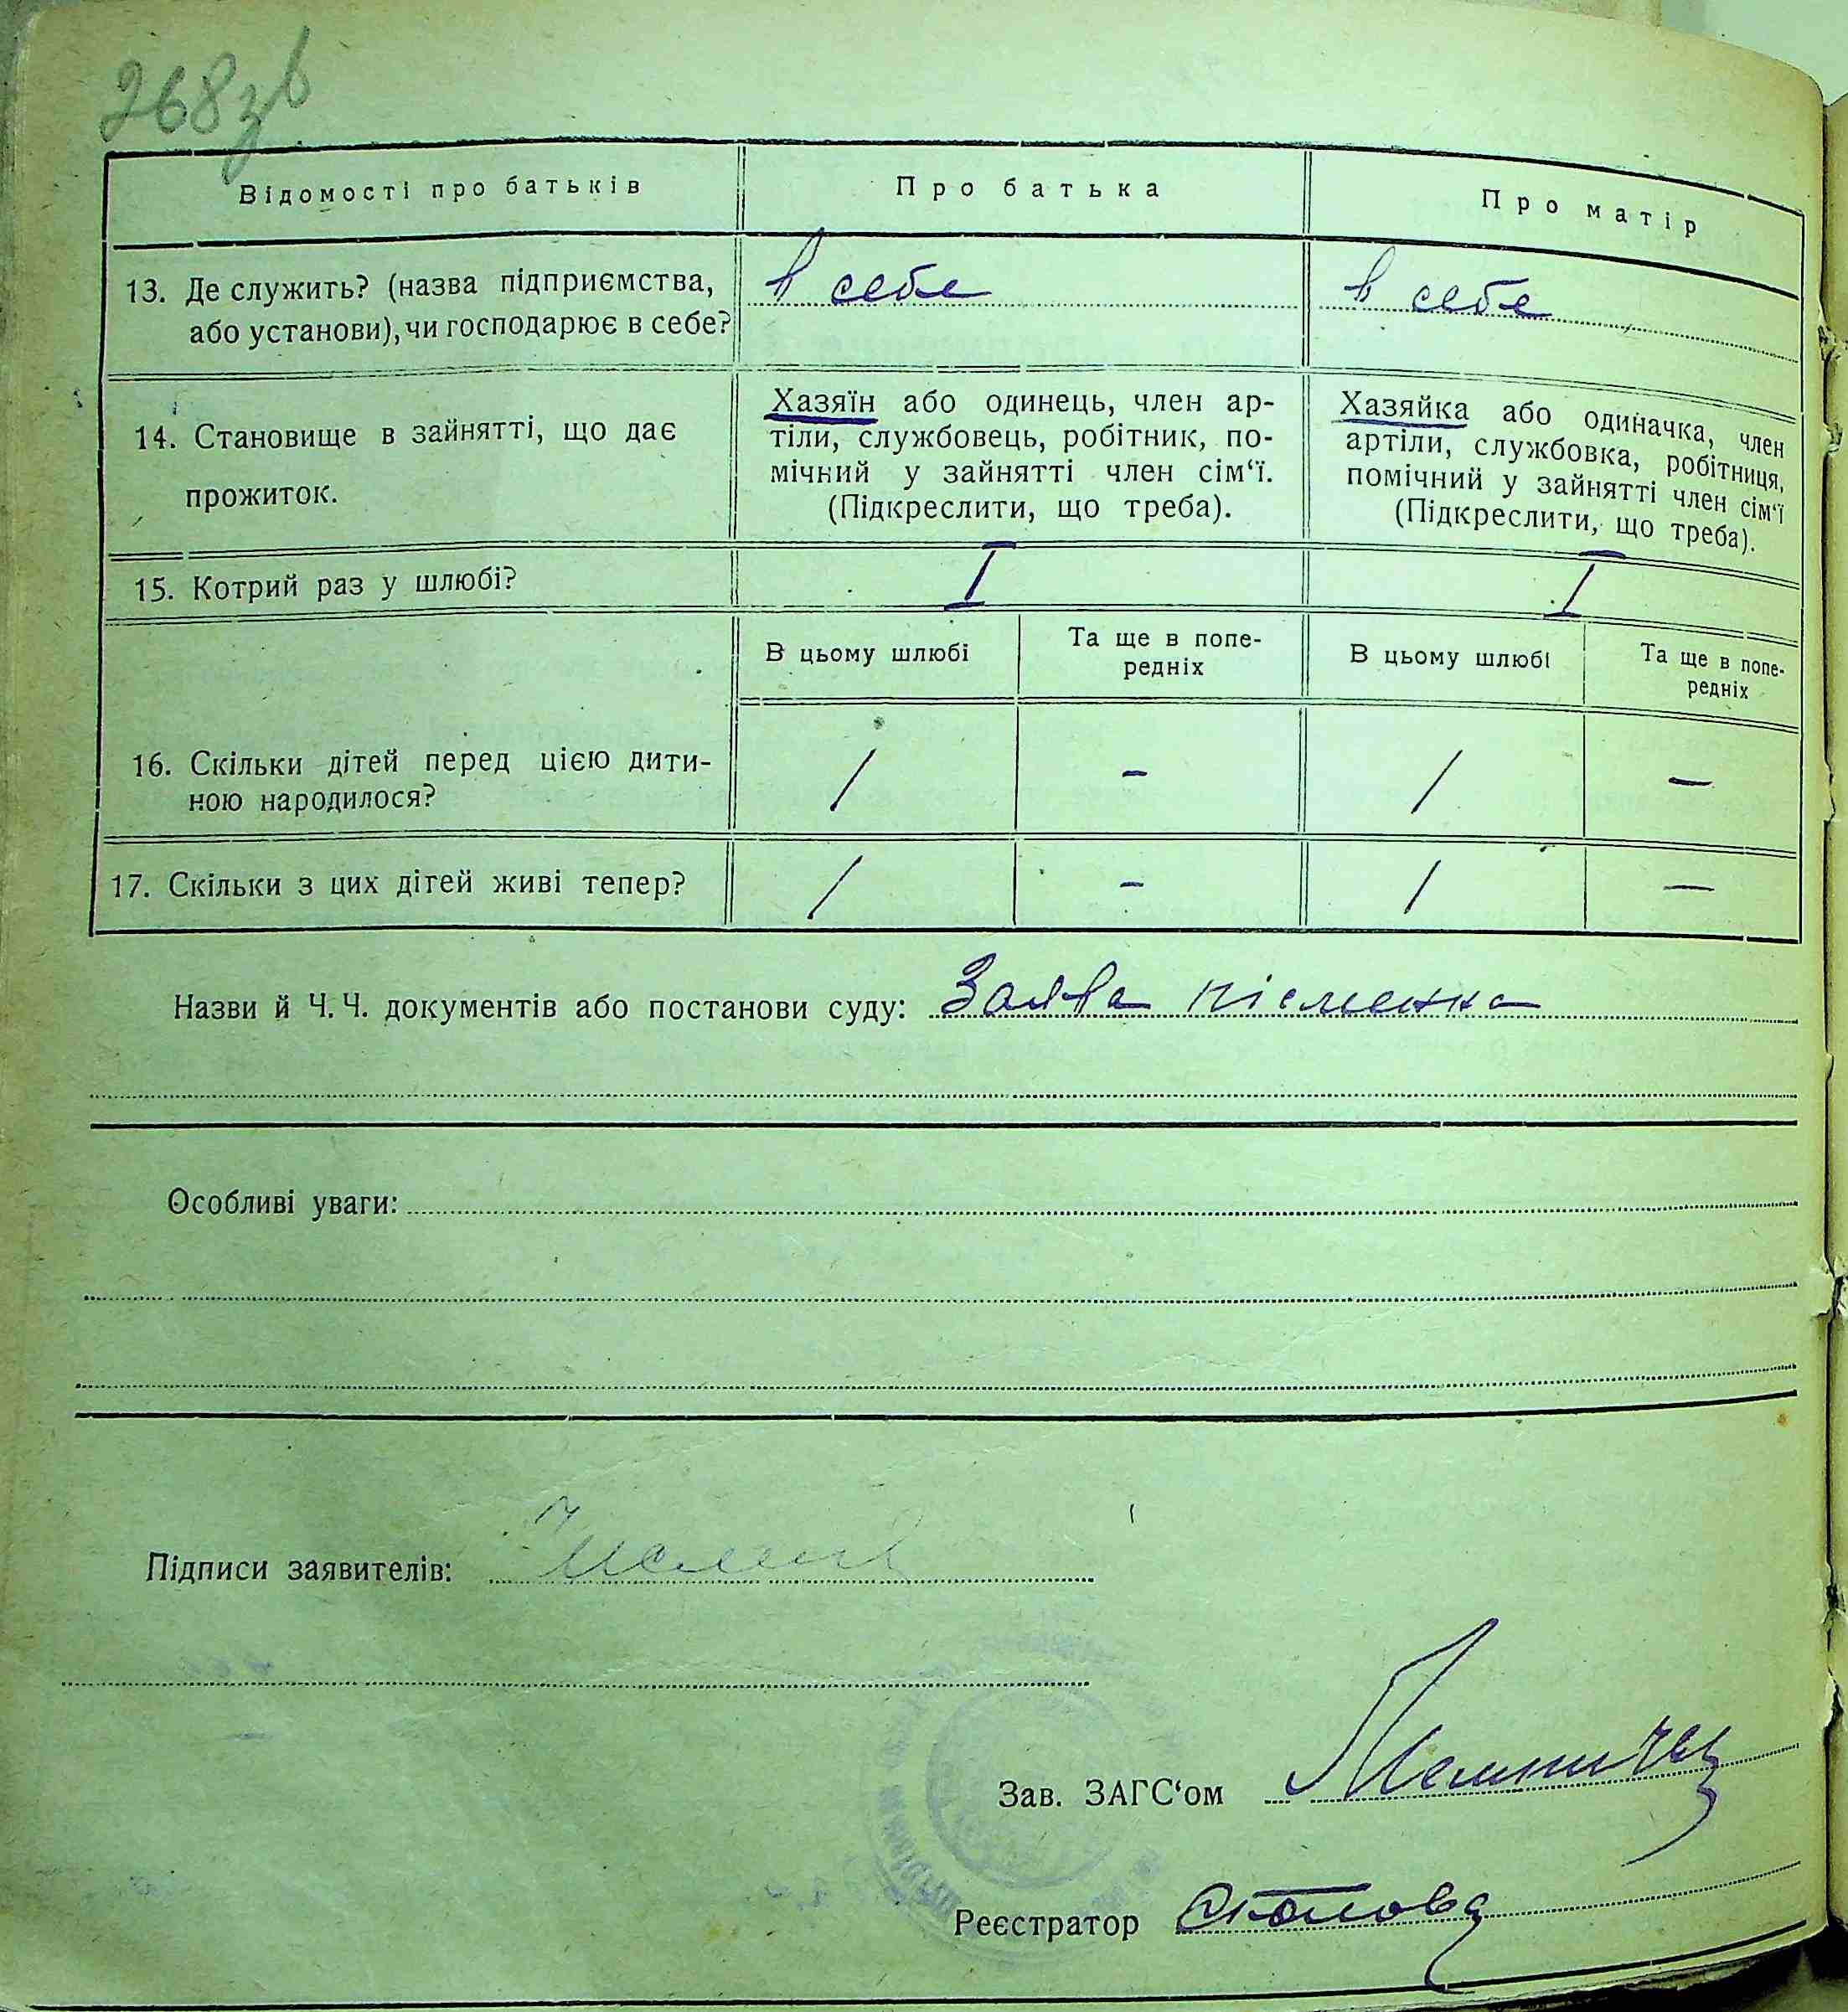 268зв
Відомості про батьків
Про батька
Про матір
13. Де служить? (назва підприємства,
або установи), чи господарює в себе?
в себе
в себе
14. Становище в зайнятті, що дає
прожиток.
Хазяїн або одинець, член ар-
тіли, службовець, робітник, по-
мічний у зайнятті член сім‘ї.
(Підкреслити, що треба).
Хазяйка або одиначка, член
артіли, службовка, робітниця,
помічний у зайнятті член сім‘ї
(Підкреслити, що треба).
15. Котрий раз у шлюбі?
I
I
В цьому шлюбі
Та ще в попе-
редніх
В цьому шлюбі
Та ще в попе-
редніх
16. Скільки дітей перед цією дити-
ною народилося?
/ - / -
17. Скільки з цих дітей живі тепер?
/ - / -
Назви й Ч. Ч. документів або постанови суду: Заява пісменна
Особливі уваги:
Підписи заявителів:
Зав. ЗАГС‘ом
Реєстратор